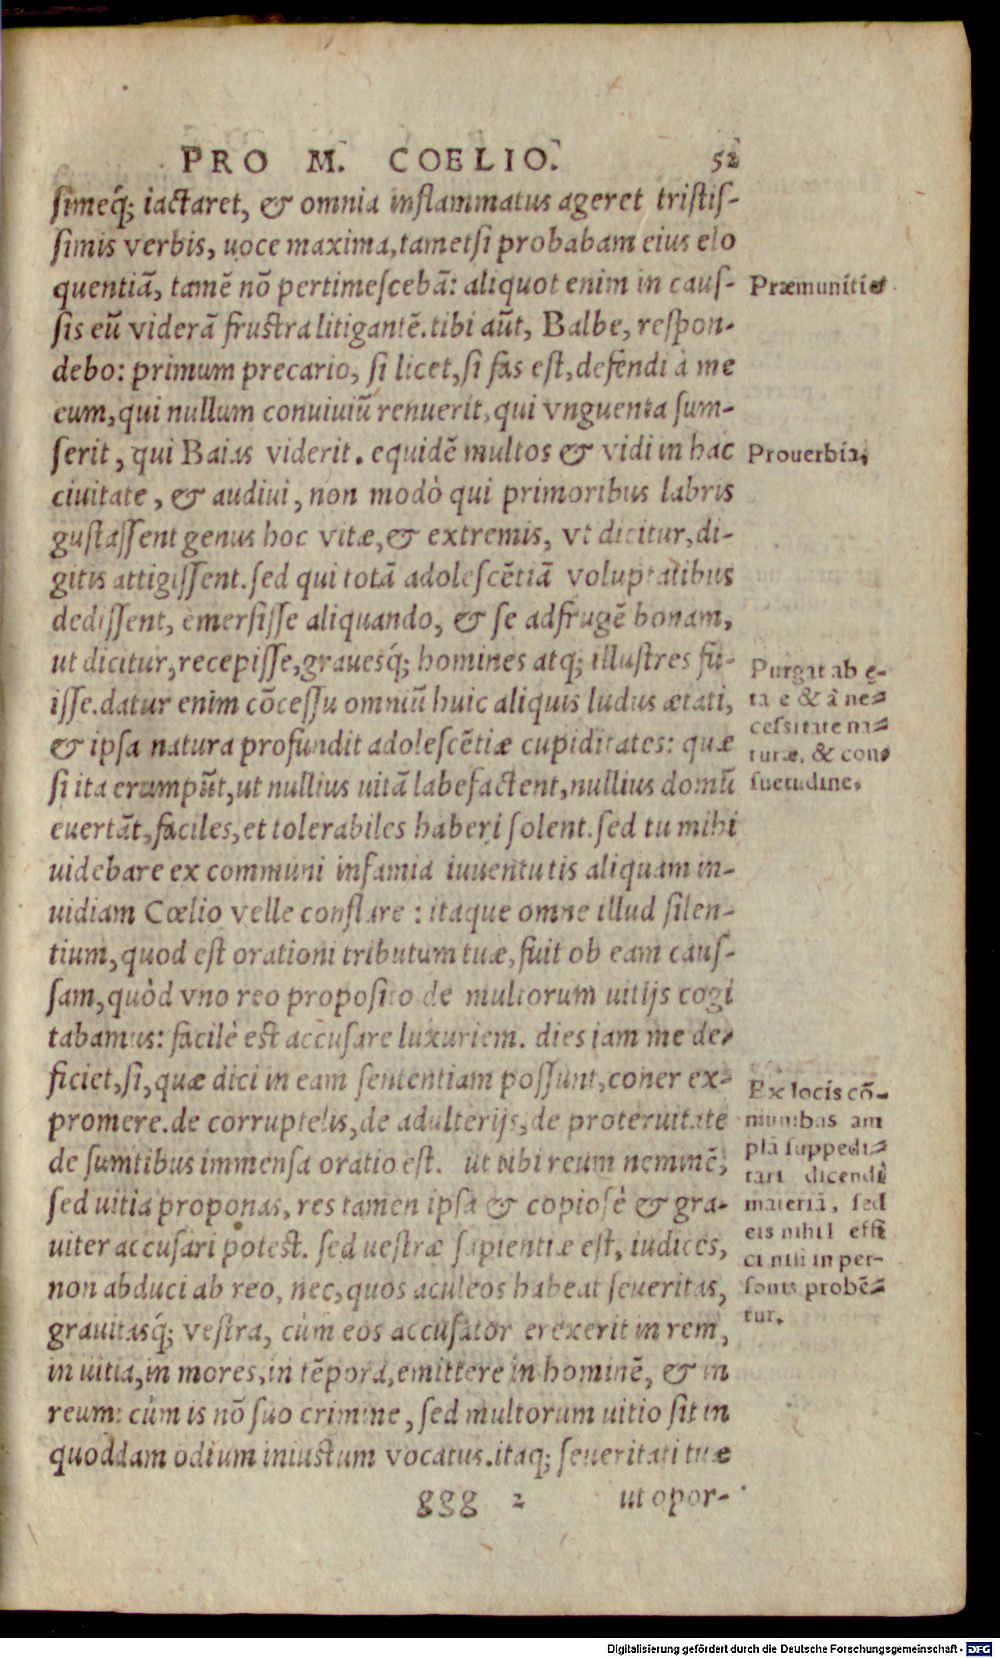 PRO M. COELIO. 52
simeq́; iactaret, & omnia inflammatus ageret tristis-
simis verbis, uoce maxima, tametsi probabam eius elo
quentiã, tamẽ nõ pertimescebã: aliquot enim in caus-
sis eũ viderã frustra litigantẽ. tibi aũt, Balbe, respon-
debo: primum precario, si licet, si fas est, defendi à me
eum, qui nullum conuiuiũ renuerit, qui vnguenta sum-
serit, qui Baias viderit. equidẽ multos & vidi in hac
ciuitate, & audiui, non modò qui primoribus labris
gustassent genus hoc vitæ, & extremis, vt dicitur, di-
gitis attigissent. sed qui totã adolescẽtiã voluptatibus
dedissent, emersisse aliquando, & se adfrugẽ bonam,
ut dicitur, recepisse, grauesq́; homines atq; illustres fu-
isse. datur enim cõcessu omniũ huic aliquis ludus ætati,
& ipsa natura profundit adolescẽtiæ cupiditates: quæ
si ita erumpũt, ut nullius uitã labefactent, nullius domũ
euertãt, faciles, et tolerabiles haberi solent. sed tu mihi
uidebare ex communi infamia iuuentutis aliquam in-
uidiam Cœlio velle conflare: itaque omne illud silen-
tium, quod est orationi tributum tuæ, fuit ob eam caus-
sam, quòd vno reo proposito de multorum uitijs cogi
tabamus: facilè est accusare luxuriem. dies iam me de-
ficiet, si, quæ dici in eam sententiam possunt, coner ex-
promere. de corruptelis, de adulterijs, de proteruitate
de sumtibus immensa oratio est. ut tibi reum neminẽ,
sed uitia proponas, res tamen ipsa & copiosè & gra-
uiter accusari potest. sed uestræ sapientiæ est, iudices,
non abduci ab reo, nec, quos aculeos habeat seueritas,
grauitasq́; vestra, cùm eos accusator erexerit in rem,
in uitia, in mores, in tẽpora, emittere in hominẽ, & in
reum: cùm is nõ suo crimine, sed multorum uitio sit in
quoddam odium iniustum vocatus. itaq; seueritati tuæ
ggg 2 ut opor-
Præmunitio
Prouerbia.
Purgat ab ę-
ta e & à ne-
cessitate na-
turæ, & con
suetudine.
Ex locis cõ-
munibus am
plã suppedi-
tari dicendi
materiã, sed
eis nihil effi
ci nisi in per-
sonis probẽ-
tur.
Digitalisierung gefördert durch die Deutsche Forschungsgemeinschaft - DFG